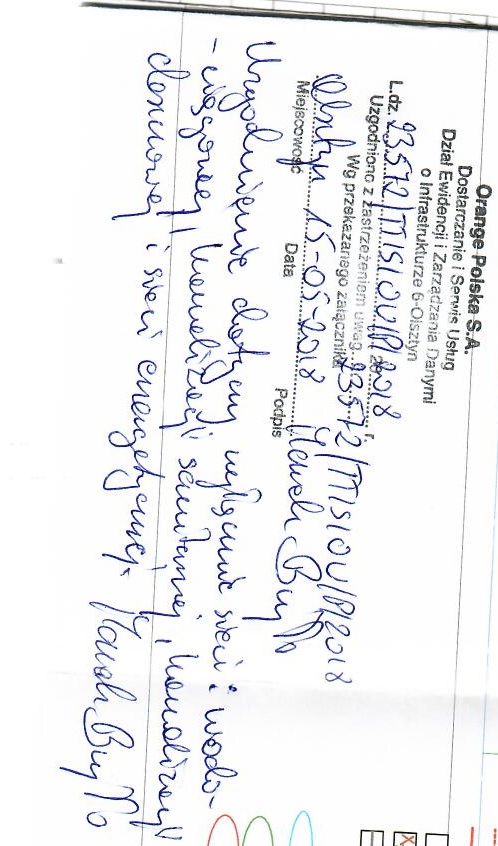 Orange Polska S.A.
Dostarczanie i Serwis Usług
Dział Ewidencji i Zarządzania Danymi
o Infrastrukturze 6-Olsztyn
L.dz. 23572/TTISIOU/P/2018 r.
Uzgodniono z zastrzeżeniem uwag
Wg przekazanego załącznika 23572/TTISIOU/P/2018
Olsztyn 15-05-2018
Miejscowość Data Podpis
Uzgodnienie dotyczy wyłącznie sieci: wodo-
-ciągowej, kanalizacji sanitarnej, kanalizacji
deszczowej i sieci energetycznej.